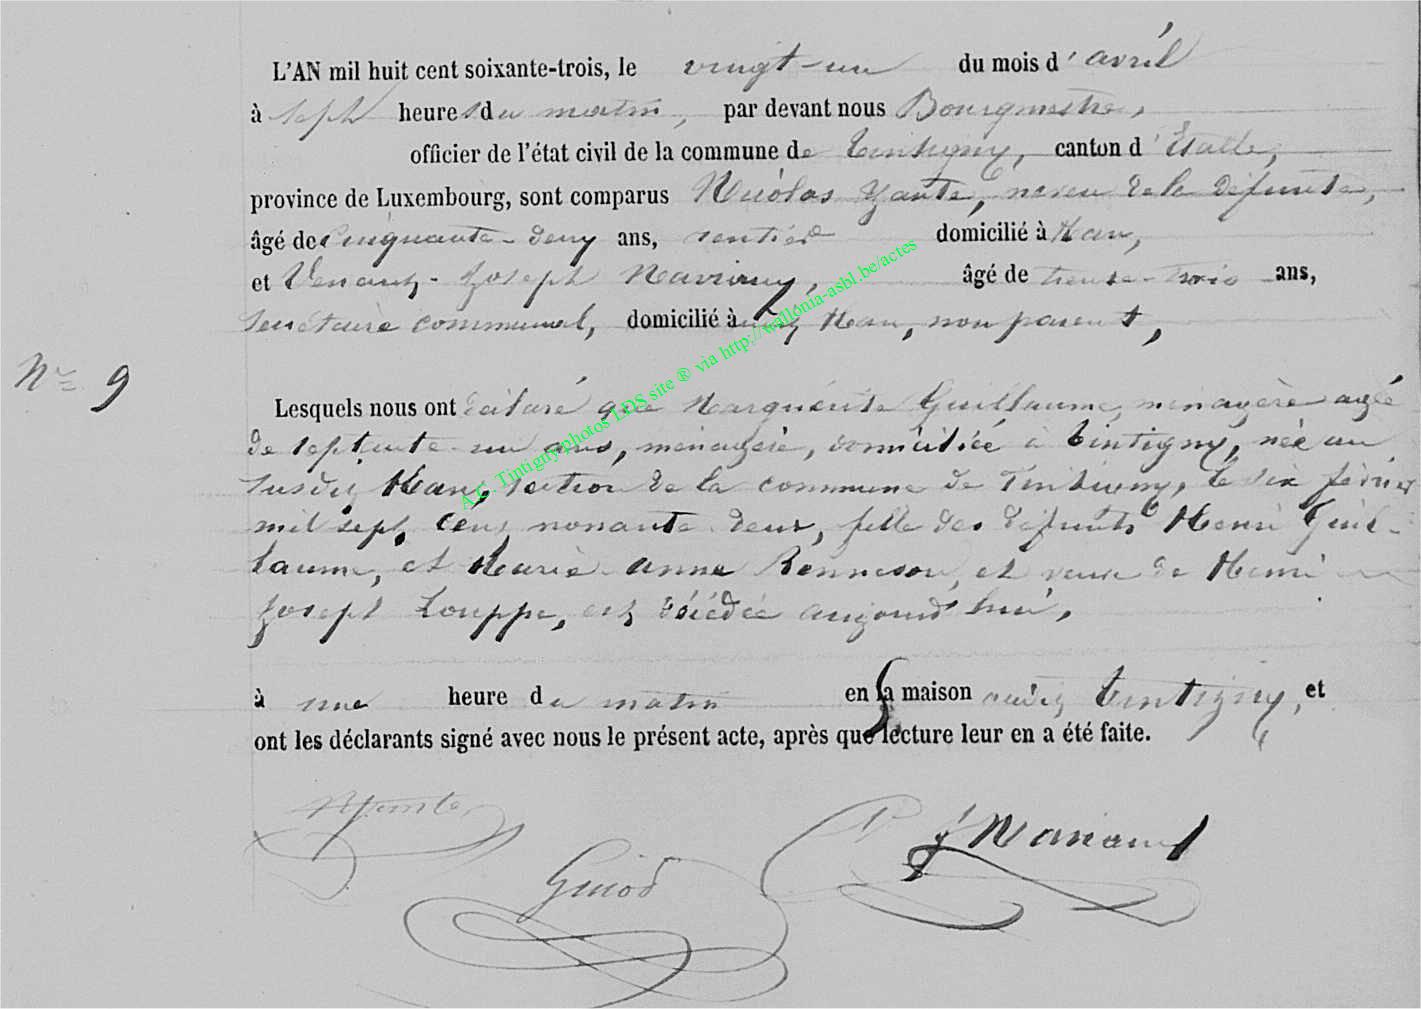 L'AN mil huit cent soixante-trois, le vingt-un du mois d'avril
à sept heures du matin, par devant nous Bourgmestre,
officier de l'état civil de la commune de Tintigny, canton d'Etalle,
province de Luxembourg, sont comparus Nicolas Yante, neveu de la défunte,
âgé de Cinquante-deux ans, rentier domicilié à Han,
et Venant-Joseph âgé de trente-trois ans,
Secrétaire communal, domicilié à Han, non parent,
N° 9
Lesquels nous ont déclaré que Marguerite Guillaume, ménagère agée
de septante-un ans, ménagère, domiciliée à Tintigny, née au
susdit Han, section de la commune de Tintigny, le six février
mil sept cent nonante-deux, fille des défunts Henri Guil-
laume, et Marie-anne Rennesson, et veuve de Henri
Joseph Louppe, est décédée aujourd'hui,
à une heure du matin en sa maison audit Tintigny, et
ont les déclarants signé avec nous le présent acte, après que lecture leur en a été faite.
NYante
Guiod
A.C. Tintigny photos LDS site ® via http://wallonia-asbl.be/actes